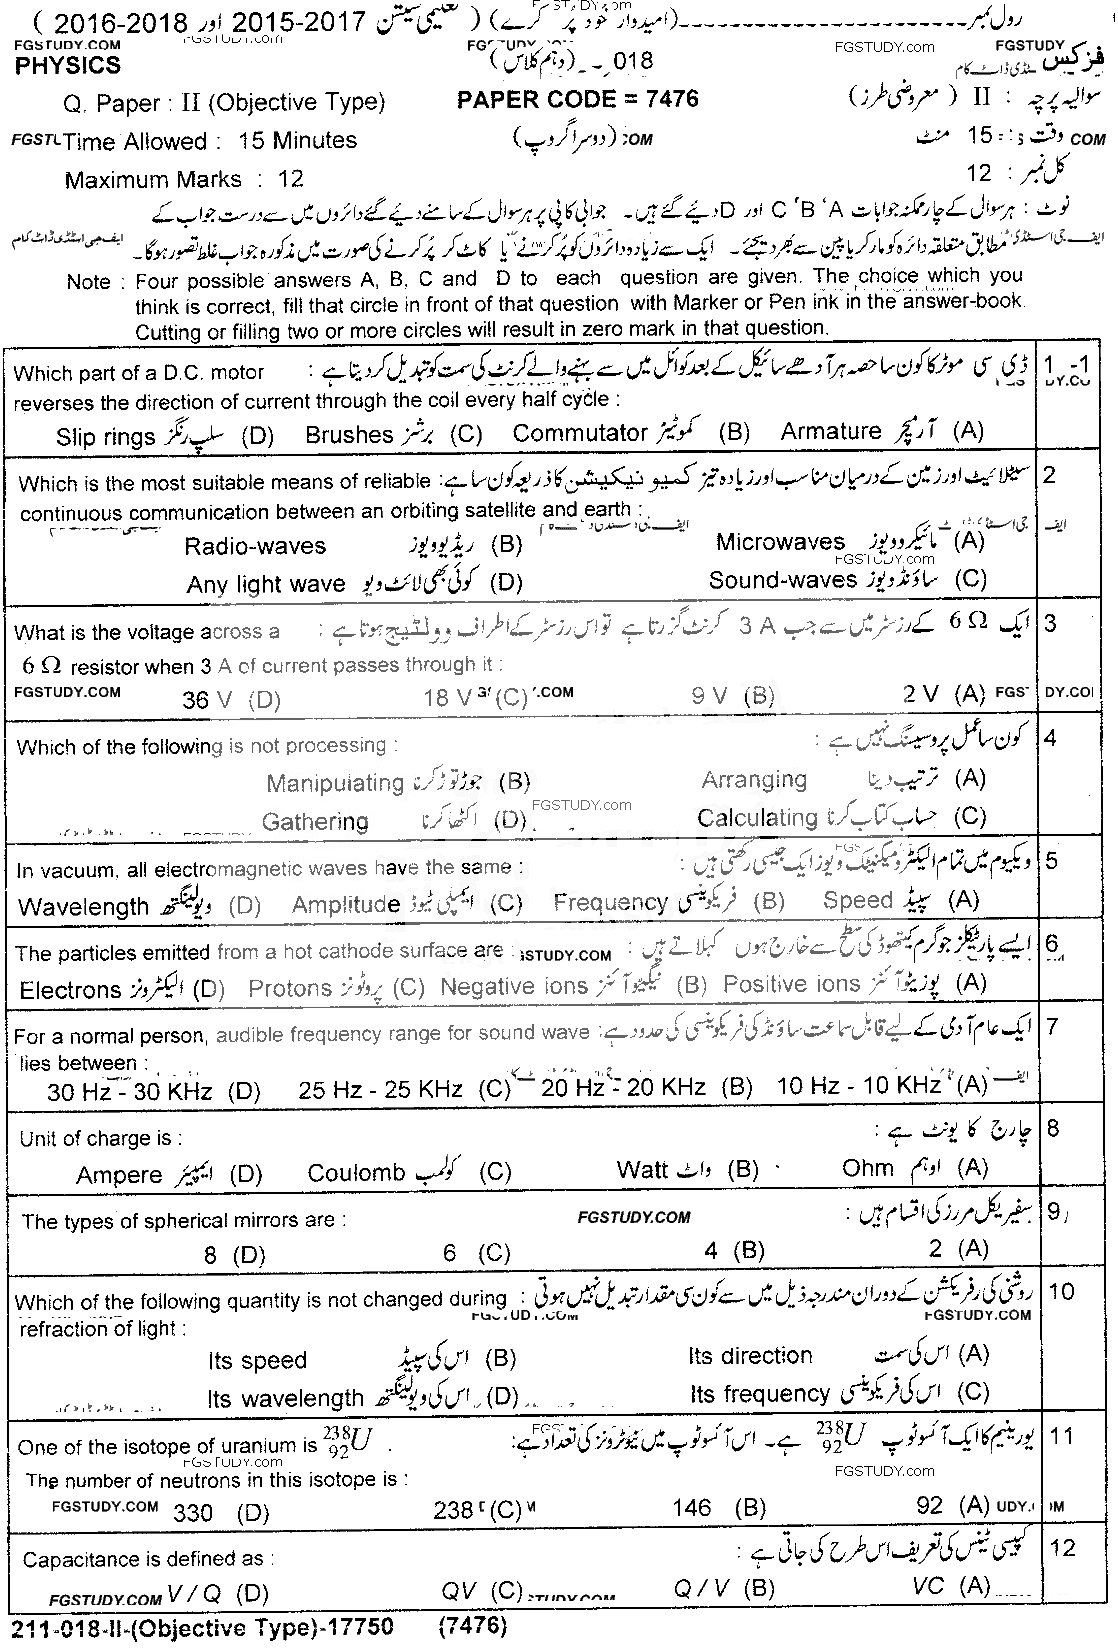 رول نمبر ـــــــــ (امیدوار خود پر کرے) ( تعلیمی سیشن 2015-2017 اور 2016-2018 )
FGSTUDY.COM FGSTUDY.com FGSTUDY.com FGSTUDY
PHYSICS 018 (دہم کلاس) فزکس
Q. Paper : II (Objective Type) PAPER CODE = 7476 سوالیہ پرچہ : II ( معروضی طرز )
Time Allowed : 15 Minutes (دوسرا گروپ) وقت : 15 منٹ
Maximum Marks : 12 کل نمبر : 12
نوٹ : ہر سوال کے چار ممکنہ جوابات A، B، C اور D دئیے گئے ہیں۔ جوابی کاپی پر ہر سوال کے سامنے دئیے گئے دائروں میں سے درست جواب کے
مطابق متعلقہ دائرہ کو مارکر یا پین سے بھر دیجئے۔ ایک سے زیادہ دائروں کو پُر کرنے یا کاٹ کر پُر کرنے کی صورت میں مذکورہ جواب غلط تصور ہوگا۔
Note : Four possible answers A, B, C and D to each question are given. The choice which you
think is correct, fill that circle in front of that question with Marker or Pen ink in the answer-book.
Cutting or filling two or more circles will result in zero mark in that question.
1-1 ڈی سی موٹر کا کون سا حصہ ہر آدھے سائیکل کے بعد کوائل میں سے بہنے والے کرنٹ کی سمت کو تبدیل کر دیتا ہے : Which part of a D.C. motor
reverses the direction of current through the coil every half cycle :
Slip rings سلپ رنگز (D) Brushes برشز (C) Commutator کموٹیٹر (B) Armature آرمیچر (A)
2 سیٹلائیٹ اور زمین کے درمیان مناسب اور زیادہ تیز کمیونیکیشن کا ذریعہ کون سا ہے: Which is the most suitable means of reliable
continuous communication between an orbiting satellite and earth :
Radio-waves ریڈیو ویوز (B) Microwaves مائیکرو ویوز (A)
FGSTUDY.com
Any light wave کوئی بھی لائٹ ویو (D) Sound-waves ساؤنڈ ویوز (C)
3 ایک 6 Ω کے رزسٹر میں سے جب 3 A کرنٹ گزرتا ہے تو اس رزسٹر کے اطراف وولٹیج ہوتا ہے : What is the voltage across a
6 Ω resistor when 3 A of current passes through it :
FGSTUDY.COM 36 V (D) 18 V (C) 9 V (B) 2 V (A)
4 کون سا عمل پروسیسنگ نہیں ہے : Which of the following is not processing :
Manipulating جوڑ توڑ کرنا (B) Arranging ترتیب دینا (A)
FGSTUDY.com
Gathering اکٹھا کرنا (D) Calculating حساب کتاب کرنا (C)
5 ویکیوم میں تمام الیکٹرومیگنیٹک ویوز ایک جیسی رکھتی ہیں : In vacuum, all electromagnetic waves have the same :
Wavelength ویولینگتھ (D) Amplitude ایمپلی ٹیوڈ (C) Frequency فریکوئنسی (B) Speed سپیڈ (A)
6 ایسے پارٹیکلز جو گرم کیتھوڈ کی سطح سے خارج ہوں کہلاتے ہیں : The particles emitted from a hot cathode surface are :
Electrons الیکٹرونز (D) Protons پروٹونز (C) Negative ions نیگیٹو آئنز (B) Positive ions پوزیٹو آئنز (A)
7 ایک عام آدمی کے لیے قابل سماعت ساؤنڈ کی فریکوئنسی کی حدود ہے : For a normal person, audible frequency range for sound wave
lies between :
30 Hz - 30 KHz (D) 25 Hz - 25 KHz (C) 20 Hz - 20 KHz (B) 10 Hz - 10 KHz (A)
8 چارج کا یونٹ ہے : Unit of charge is :
Ampere ایمپیئر (D) Coulomb کولمب (C) Watt واٹ (B) Ohm اوہم (A)
9 سفیریکل مررز کی اقسام ہیں : FGSTUDY.COM The types of spherical mirrors are :
8 (D) 6 (C) 4 (B) 2 (A)
10 روشنی کی رفریکشن کے دوران مندرجہ ذیل میں سے کون سی مقدار تبدیل نہیں ہوتی : Which of the following quantity is not changed during
refraction of light : FGSTUDY.COM
Its speed اس کی سپیڈ (B) Its direction اس کی سمت (A)
Its wavelength اس کی ویولینگتھ (D) Its frequency اس کی فریکوئنسی (C)
11 یورینیم کا ایک آئسوٹوپ ²³⁸₉₂U ہے۔ اس آئسوٹوپ میں نیوٹرونز کی تعداد ہے: One of the isotope of uranium is ²³⁸₉₂U .
FGSTUDY.com FGSTUDY.com
The number of neutrons in this isotope is :
FGSTUDY.COM 330 (D) 238 (C) 146 (B) 92 (A)
12 کپیسی ٹینس کی تعریف اس طرح کی جاتی ہے : Capacitance is defined as :
FGSTUDY.COM V / Q (D) QV (C) Q / V (B) VC (A)
211-018-II-(Objective Type)-17750 (7476)